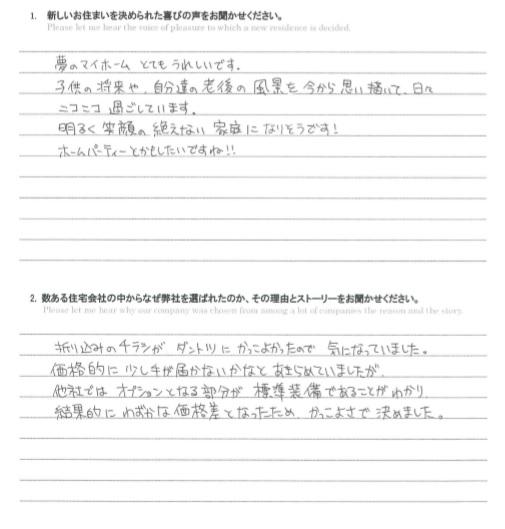 1. 新しいお住まいを決められた喜びの声をお聞かせください。
Please let me hear the voice of pleasure to which a new residence is decided.
夢のマイホーム とてもうれしいです。
子供の将来や、自分達の老後の風景を今から思い描いて、日々
ニコニコ過ごしています。
明るく笑顔の絶えない家庭になりそうです!
ホームパーティーとかもしたいですね!!
2. 数ある住宅会社の中からなぜ弊社を選ばれたのか、その理由とストーリーをお聞かせください。
Please let me hear why our company was chosen from among a lot of companies the reason and the story.
折り込みのチラシが ダントツにかっこよかったので 気になっていました。
価格的に少し手が届かないかなとあきらめていましたが、
他社ではオプションとなる部分が標準装備であることがわかり、
結果的にわずかな価格差となったため、かっこよさで決めました。